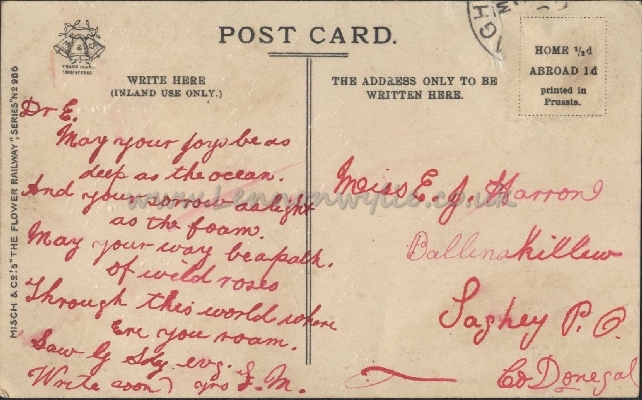 POST CARD.
WRITE HERE
(INLAND USE ONLY.)
THE ADDRESS ONLY TO BE
WRITTEN HERE.
HOME ½d
ABROAD 1d
printed in
Prussia.
TRADE MARK
MISCH & Co's. "THE FLOWER RAILWAY", SERIES No 986
Dr E.
May your joys be as
deep as the ocean.
And your sorrow as light
as the foam.
May your way be a path.
of weld roses
Through this world where
Ere you roam.
Saw G Sdy evg.
Write soon yrs J. M.
Miss E. J. Harron
Ballinakillew
Laghey P. O.
Co Donegal
www.Lennonwylie.co.uk